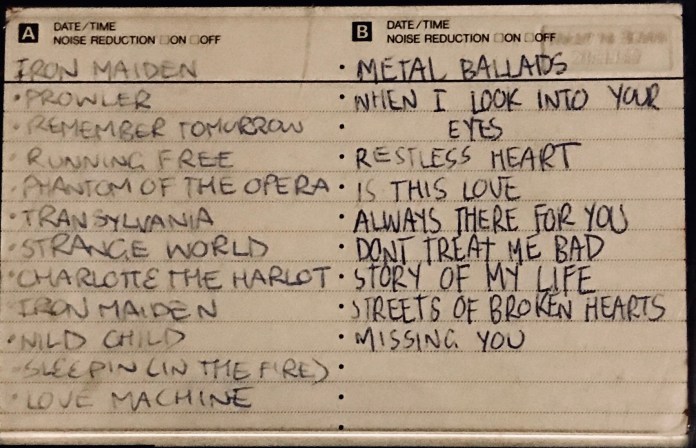 A DATE/TIME
NOISE REDUCTION □ON □OFF
IRON MAIDEN
• PROWLER
• REMEMBER TOMORROW
• RUNNING FREE
• PHANTOM OF THE OPERA
• TRANSYLVANIA
• STRANGE WORLD
• CHARLOTTE THE HARLOT
• IRON MAIDEN
• WILD CHILD
• SLEEPIN (IN THE FIRE)
• LOVE MACHINE
B DATE/TIME
NOISE REDUCTION □ON □OFF
• METAL BALLADS
• WHEN I LOOK INTO YOUR
• EYES
• RESTLESS HEART
• IS THIS LOVE
• ALWAYS THERE FOR YOU
• DONT TREAT ME BAD
• STORY OF MY LIFE
• STREETS OF BROKEN HEARTS
• MISSING YOU